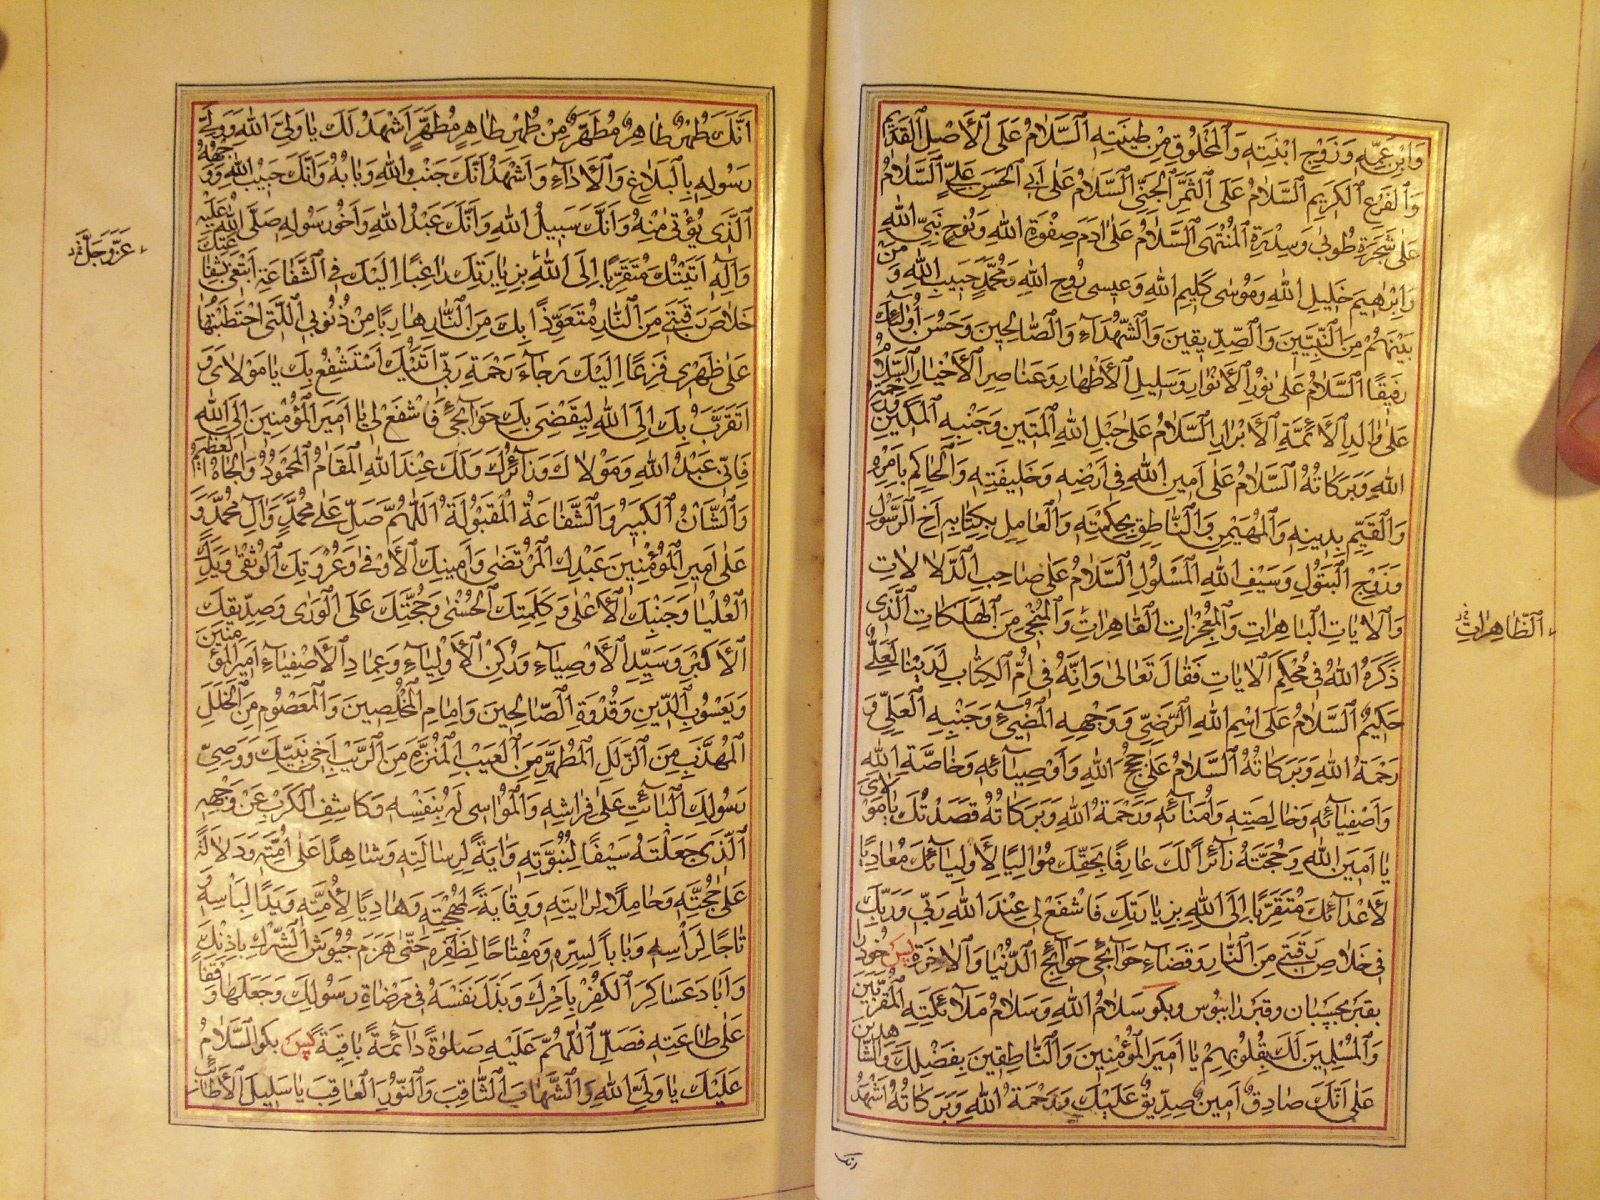 وَابْنِ عَمِّهِ وَزَوْجِ ابْنَتِهِ وَالْمَخْلُوقِ مِنْ طِينَتِهِ اَلسَّلَامُ عَلَى الْأَصْلِ الْقَدِيمِ
وَالْفَرْعِ الْكَرِيمِ اَلسَّلَامُ عَلَى الثَّمَرِ الْجَنِيِّ اَلسَّلَامُ عَلَى أَبِي الْحَسَنِ عَلِيٍّ اَلسَّلَامُ
عَلَى شَجَرَةِ طُوبَى وَسِدْرَةِ الْمُنْتَهَى اَلسَّلَامُ عَلَى آدَمَ صِفْوَةِ اللهِ وَنُوحٍ نَبِيِّ اللهِ
وَإِبْرَاهِيمَ خَلِيلِ اللهِ وَمُوسَى كَلِيمِ اللهِ وَعِيسَى رُوحِ اللهِ وَمُحَمَّدٍ حَبِيبِ اللهِ وَمَنْ
بَيْنَهُمْ مِنَ النَّبِيِّينَ وَالصِّدِّيقِينَ وَالشُّهَدَاءِ وَالصَّالِحِينَ وَحَسُنَ أُولَئِكَ
رَفِيقًا اَلسَّلَامُ عَلَى نُورِ الْأَنْوَارِ وَسَلِيلِ الْأَطْهَارِ وَعَنَاصِرِ الْأَخْيَارِ اَلسَّلَامُ
عَلَى وَالِدِ الْأَئِمَّةِ الْأَبْرَارِ اَلسَّلَامُ عَلَى حَبْلِ اللهِ الْمَتِينِ وَجَنْبِهِ الْمَكِينِ وَرَحْمَةُ
اللهِ وَبَرَكَاتُهُ اَلسَّلَامُ عَلَى أَمِينِ اللهِ فِي أَرْضِهِ وَخَلِيفَتِهِ وَالْحَاكِمِ بِأَمْرِهِ
وَالْقَيِّمِ بِدِينِهِ وَالْمُهَيْمِنِ وَالنَّاطِقِ بِحِكْمَتِهِ وَالْعَامِلِ بِكِتَابِهِ أَخِ الرَّسُولِ
وَزَوْجِ الْبَتُولِ وَسَيْفِ اللهِ الْمَسْلُولِ اَلسَّلَامُ عَلَى صَاحِبِ الدَّلَالَاتِ
وَالْآيَاتِ الْبَاهِرَاتِ وَالْمُعْجِزَاتِ الْقَاهِرَاتِ وَالْمُنْجِي مِنَ الْهَلَكَاتِ الَّذِي
الظَّاهِرَاتِ
ذَكَرَهُ اللهُ فِي مُحْكَمِ الْآيَاتِ فَقَالَ تَعَالَى وَإِنَّهُ فِي أُمِّ الْكِتَابِ لَدَيْنَا لَعَلِيٌّ
حَكِيمٌ اَلسَّلَامُ عَلَى اسْمِ اللهِ الرَّضِيِّ وَوَجْهِهِ الْمُضِيءِ وَجَنْبِهِ الْعَلِيِّ وَ
رَحْمَةُ اللهِ وَبَرَكَاتُهُ اَلسَّلَامُ عَلَى حُجَجِ اللهِ وَأَوْصِيَائِهِ وَخَاصَّةِ اللهِ
وَأَصْفِيَائِهِ وَخَالِصَتِهِ وَأُمَنَائِهِ وَرَحْمَةُ اللهِ وَبَرَكَاتُهُ قَصَدْتُكَ يَا مَوْلَايَ
يَا أَمِينَ اللهِ وَحُجَّتَهُ زَائِرًا لَكَ عَارِفًا بِحَقِّكَ مُوَالِيًا لِأَوْلِيَائِكَ مُعَادِيًا
لِأَعْدَائِكَ مُتَقَرِّبًا إِلَى اللهِ بِزِيَارَتِكَ فَاشْفَعْ لِي عِنْدَ اللهِ رَبِّي وَرَبِّكَ
فِي خَلَاصِ رَقَبَتِي مِنَ النَّارِ وَقَضَاءِ حَوَائِجِي حَوَائِجِ الدُّنْيَا وَالْآخِرَةِ پس خود را
بقبر بچسبان و قبر را ببوس و بگو سَلَامُ اللهِ وَسَلَامُ مَلَائِكَتِهِ الْمُقَرَّبِينَ
وَالْمُسْلِمِينَ لَكَ بِقُلُوبِهِمْ يَا أَمِيرَ الْمُؤْمِنِينَ وَالنَّاطِقِينَ بِفَضْلِكَ وَالشَّاهِدِينَ
عَلَى أَنَّكَ صَادِقٌ أَمِينٌ صِدِّيقٌ عَلَيْكَ وَرَحْمَةُ اللهِ وَبَرَكَاتُهُ أَشْهَدُ
انك
أَنَّكَ طُهْرٌ طَاهِرٌ مُطَهَّرٌ مِنْ طُهْرٍ طَاهِرٍ مُطَهَّرٍ أَشْهَدُ لَكَ يَا وَلِيَّ اللهِ وَوَلِيَّ
رَسُولِهِ بِالْبَلَاغِ وَالْأَدَاءِ وَأَشْهَدُ أَنَّكَ جَنْبُ اللهِ وَبَابُهُ وَأَنَّكَ حَبِيبُ اللهِ وَوَجْهُهُ
الَّذِي يُؤْتَى مِنْهُ وَأَنَّكَ سَبِيلُ اللهِ وَأَنَّكَ عَبْدُ اللهِ وَأَخُو رَسُولِهِ صَلَّى اللهُ عَلَيْهِ
عَزَّ وَجَلَّ
وَآلِهِ أَتَيْتُكَ مُتَقَرِّبًا إِلَى اللهِ بِزِيَارَتِكَ رَاغِبًا إِلَيْكَ فِي الشَّفَاعَةِ أَبْتَغِي بِشَفَاعَتِكَ
خَلَاصَ رَقَبَتِي مِنَ النَّارِ مُتَعَوِّذًا بِكَ مِنَ النَّارِ هَارِبًا مِنْ ذُنُوبِيَ الَّتِي احْتَطَبْتُهَا
عَلَى ظَهْرِي فَزِعًا إِلَيْكَ رَجَاءَ رَحْمَةِ رَبِّي أَتَيْتُكَ أَسْتَشْفِعُ بِكَ يَا مَوْلَايَ وَ
أَتَقَرَّبُ بِكَ إِلَى اللهِ لِيَقْضِيَ بِكَ حَوَائِجِي فَاشْفَعْ لِي يَا أَمِيرَ الْمُؤْمِنِينَ إِلَى اللهِ
فَإِنِّي عَبْدُ اللهِ وَمَوْلَاكَ وَزَائِرُكَ وَلَكَ عِنْدَ اللهِ الْمَقَامُ الْمَحْمُودُ وَالْجَاهُ الْعَظِيمُ
وَالشَّأْنُ الْكَبِيرُ وَالشَّفَاعَةُ الْمَقْبُولَةُ اَللّٰهُمَّ صَلِّ عَلَى مُحَمَّدٍ وَآلِ مُحَمَّدٍ وَ
عَلَى أَمِيرِ الْمُؤْمِنِينَ عَبْدِكَ الْمُرْتَضَى وَأَمِينِكَ الْأَوْفَى وَعُرْوَتِكَ الْوُثْقَى وَيَدِكَ
الْعُلْيَا وَجَنْبِكَ الْأَعْلَى وَكَلِمَتِكَ الْحُسْنَى وَحُجَّتِكَ عَلَى الْوَرَى وَصِدِّيقِكَ
الْأَكْبَرِ وَسَيِّدِ الْأَوْصِيَاءِ وَرُكْنِ الْأَوْلِيَاءِ وَعِمَادِ الْأَصْفِيَاءِ أَمِيرِ الْمُؤْمِنِينَ
وَيَعْسُوبِ الدِّينِ وَقُدْوَةِ الصَّالِحِينَ وَإِمَامِ الْمُخْلِصِينَ وَالْمَعْصُومِ مِنَ الْخَلَلِ
الْمُهَذَّبِ مِنَ الزَّلَلِ الْمُطَهَّرِ مِنَ الْعَيْبِ الْمُنَزَّهِ مِنَ الرَّيْبِ أَخِي نَبِيِّكَ وَوَصِيِّ
رَسُولِكَ الْبَائِتِ عَلَى فِرَاشِهِ وَالْمُوَاسِي لَهُ بِنَفْسِهِ وَكَاشِفِ الْكَرْبِ عَنْ وَجْهِهِ
الَّذِي جَعَلْتَهُ سَيْفًا لِنُبُوَّتِهِ وَآيَةً لِرِسَالَتِهِ وَشَاهِدًا عَلَى أُمَّتِهِ وَدَلَالَةً
عَلَى حُجَّتِهِ وَحَامِلًا لِرَايَتِهِ وَوِقَايَةً لِمُهْجَتِهِ وَهَادِيًا لِأُمَّتِهِ وَيَدًا لِبَأْسِهِ وَ
تَاجًا لِرَأْسِهِ وَبَابًا لِسِرِّهِ وَمِفْتَاحًا لِظَفَرِهِ حَتَّى هَزَمَ جُيُوشَ الشِّرْكِ بِإِذْنِكَ
وَأَبَادَ عَسَاكِرَ الْكُفْرِ بِأَمْرِكَ وَبَذَلَ نَفْسَهُ فِي مَرْضَاةِ رَسُولِكَ وَجَعَلَهَا وَقْفًا
عَلَى طَاعَتِهِ فَصَلِّ اللّٰهُمَّ عَلَيْهِ صَلٰوةً دَائِمَةً بَاقِيَةً پس بگو اَلسَّلَامُ
عَلَيْكَ يَا وَلِيَّ اللهِ وَالشِّهَابَ الثَّاقِبَ وَالنُّورَ الْعَاقِبَ يَا سَلِيلَ الْأَطَائِبِ